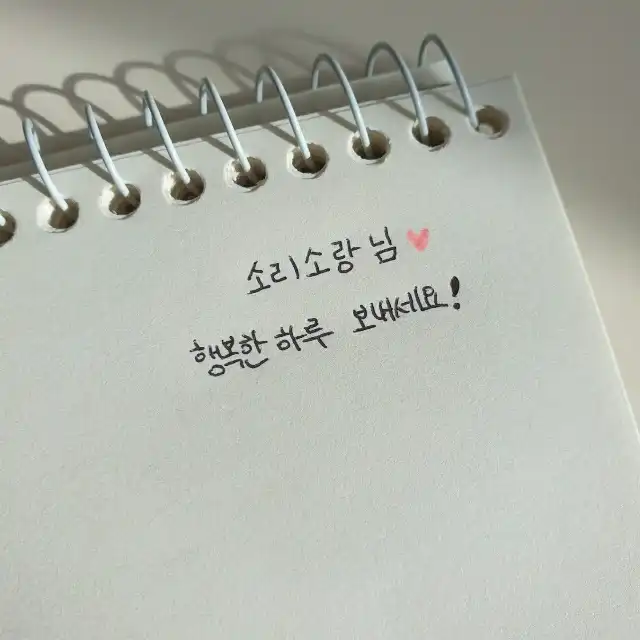 소리소랑님♥
행복한 하루 보내세요!